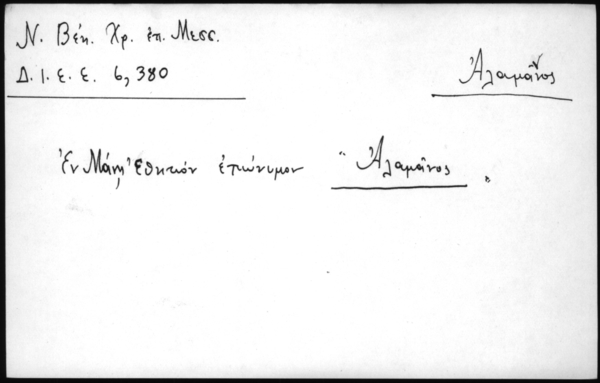 Ν. Βέη. Χρ. ἐπ. Μεσσ.
Δ. Ι. Ε. Ε. 6, 380
Ἀλαμᾶνος
Ἐν Μάνῃ ἐθνικόν ἐπώνυμον "Ἀλαμᾶνος"